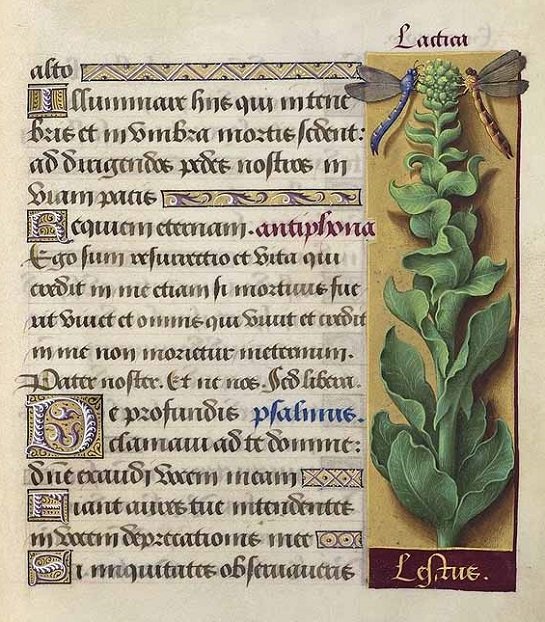 Lactica
alto
Illuminare hiis qui in tene
bris et in vmbra mortis sedent:
ad dirigendos pedes nostros in
viam pacis
Requiem eternam. antiphona
Ego sum resurrectio et vita qui
credit in me etiam si mortuus fue
rit viuet et omnis qui viuit et credit
in me non morietur ineternum.
Pater noster. Et ne nos. Sed libera.
De profundis psalmus.
clamaui ad te domine:
dñe exaudi vocem meam
Fiant aures tue intendentes
in vocem deprecationis mee
Si iniquitates obseruaueris
Lestue.